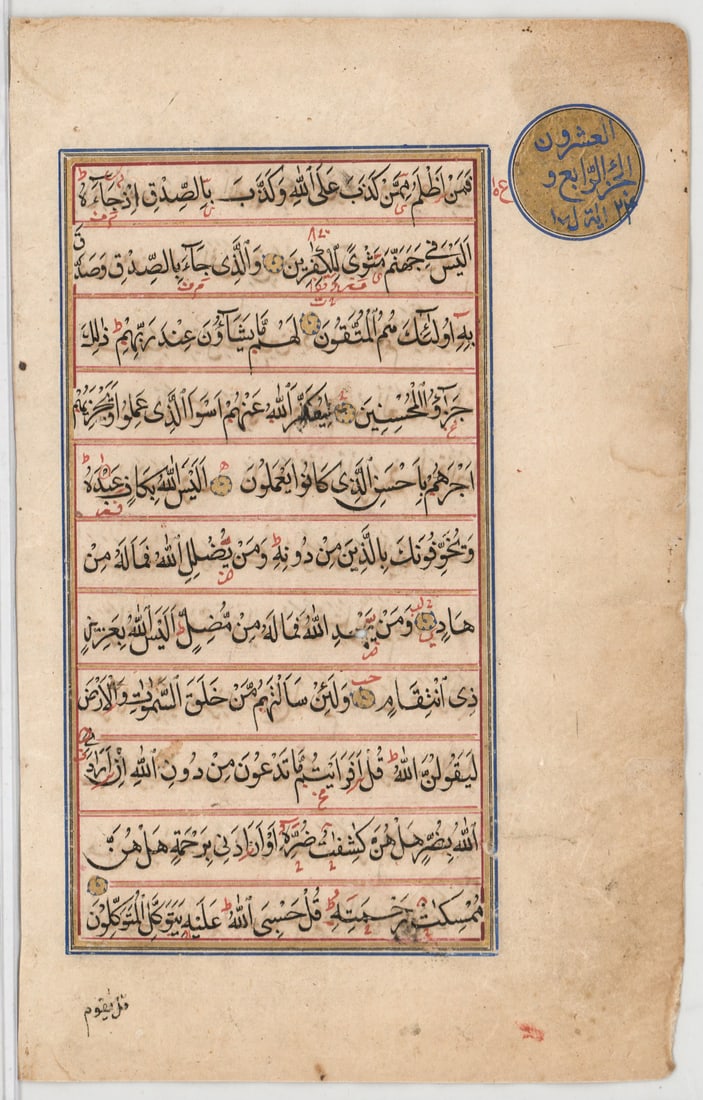 العشرون
الجزء الرابع و
فَمَنْ اَظْلَمُ مِمَّنْ كَذَبَ عَلَى اللهِ وَكَذَّبَ بِالصِّدْقِ اِذْ جَآءَهُ
اَلَيْسَ فِي جَهَنَّمَ مَثْوًى لِلْكٰفِرِينَ وَالَّذِى جَآءَ بِالصِّدْقِ وَصَدَّقَ
بِهِ اُولٰئِكَ هُمُ الْمُتَّقُونَ لَهُمْ مَّا يَشَآؤُنَ عِنْدَ رَبِّهِمْ ذٰلِكَ
جَزَآؤُ الْمُحْسِنِينَ لِيُكَفِّرَ اللهُ عَنْهُمْ اَسْوَاَ الَّذِى عَمِلُوا وَيَجْزِيَهُمْ
اَجْرَهُمْ بِاَحْسَنِ الَّذِى كَانُوا يَعْمَلُونَ اَلَيْسَ اللهُ بِكَافٍ عَبْدَهُ
وَيُخَوِّفُونَكَ بِالَّذِينَ مِنْ دُونِهِ وَمَنْ يُّضْلِلِ اللهُ فَمَالَهُ مِنْ
هَادٍ وَمَنْ يَّهْدِ اللهُ فَمَالَهُ مِنْ مُّضِلٍّ اَلَيْسَ اللهُ بِعَزِيزٍ
ذِى انْتِقَامٍ وَلَئِنْ سَاَلْتَهُمْ مَّنْ خَلَقَ السَّمٰوٰتِ وَالْاَرْضَ
لَيَقُولُنَّ اللهُ قُلْ اَفَرَاَيْتُمْ مَّا تَدْعُونَ مِنْ دُونِ اللهِ اِنْ اَرَادَنِي
اللهُ بِضُرٍّ هَلْ هُنَّ كٰشِفٰتُ ضُرِّهِ اَوْ اَرَادَنِى بِرَحْمَةٍ هَلْ هُنَّ
مُمْسِكٰتُ رَحْمَتِهِ قُلْ حَسْبِىَ اللهُ عَلَيْهِ يَتَوَكَّلُ الْمُتَوَكِّلُونَ
قل يقوم